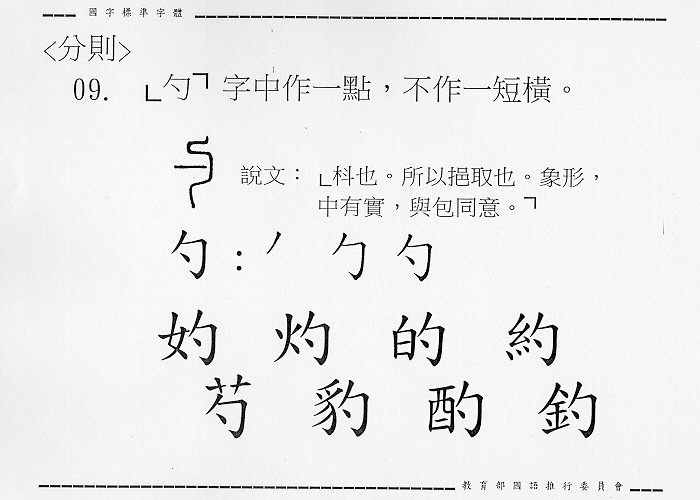 國字標準字體
<分則>
09. 「勺」字中作一點，不作一短橫。
說文：「枓也。所以挹取也。象形，
中有實，與包同意。」
勺：丿 勹 勺
妁 灼 的 約
芍 豹 酌 釣
教育部國語推行委員會